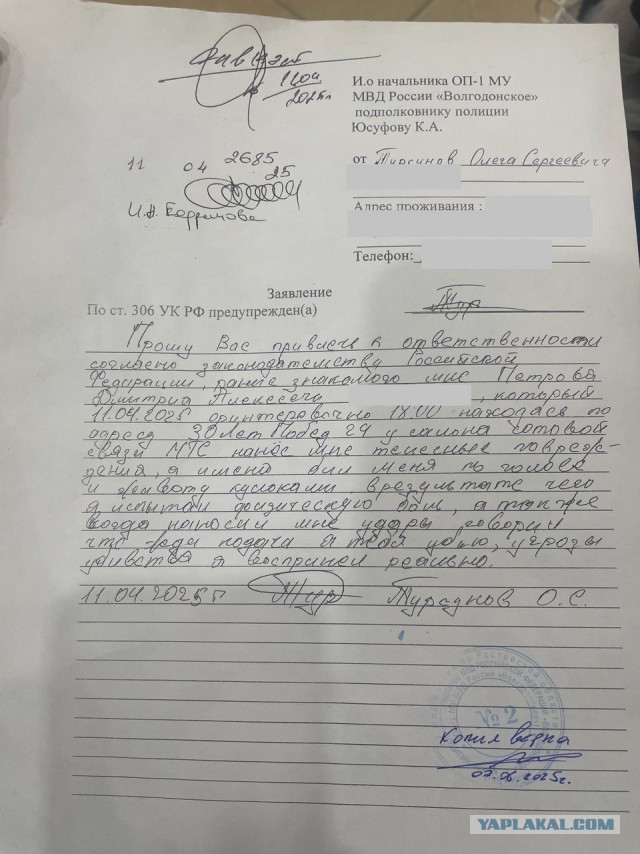 11.04.
2025г
И.о начальника ОП-1 МУ
МВД России «Волгодонское»
подполковнику полиции
Юсуфову К.А.
11 04 2685
25
от Олега Сергеевича
Адрес проживания :
Телефон:
Заявление
По ст. 306 УК РФ предупрежден(а)
Прошу Вас привлечь к ответственности
согласно законодательства Российской
Федерации, ранее знакомого мне Петрова
Дмитрия , который
11.04.2025 18.00 находясь по
адресу 30 Лет Побед 29 у салона сотовой
связи МТС нанёс мне телесные повреж-
дения, а именно бил меня по голове
и животу кулоками врезультате чего
я испытал физическую боль, а также
когда наносил мне удары говорил
что подача я тебя убью, угрозы
убивства я воспринел реально.
11.04.2025г О.С.
№ 2
Копия верна
09.06.2025г.
YAPLAKAL.COM